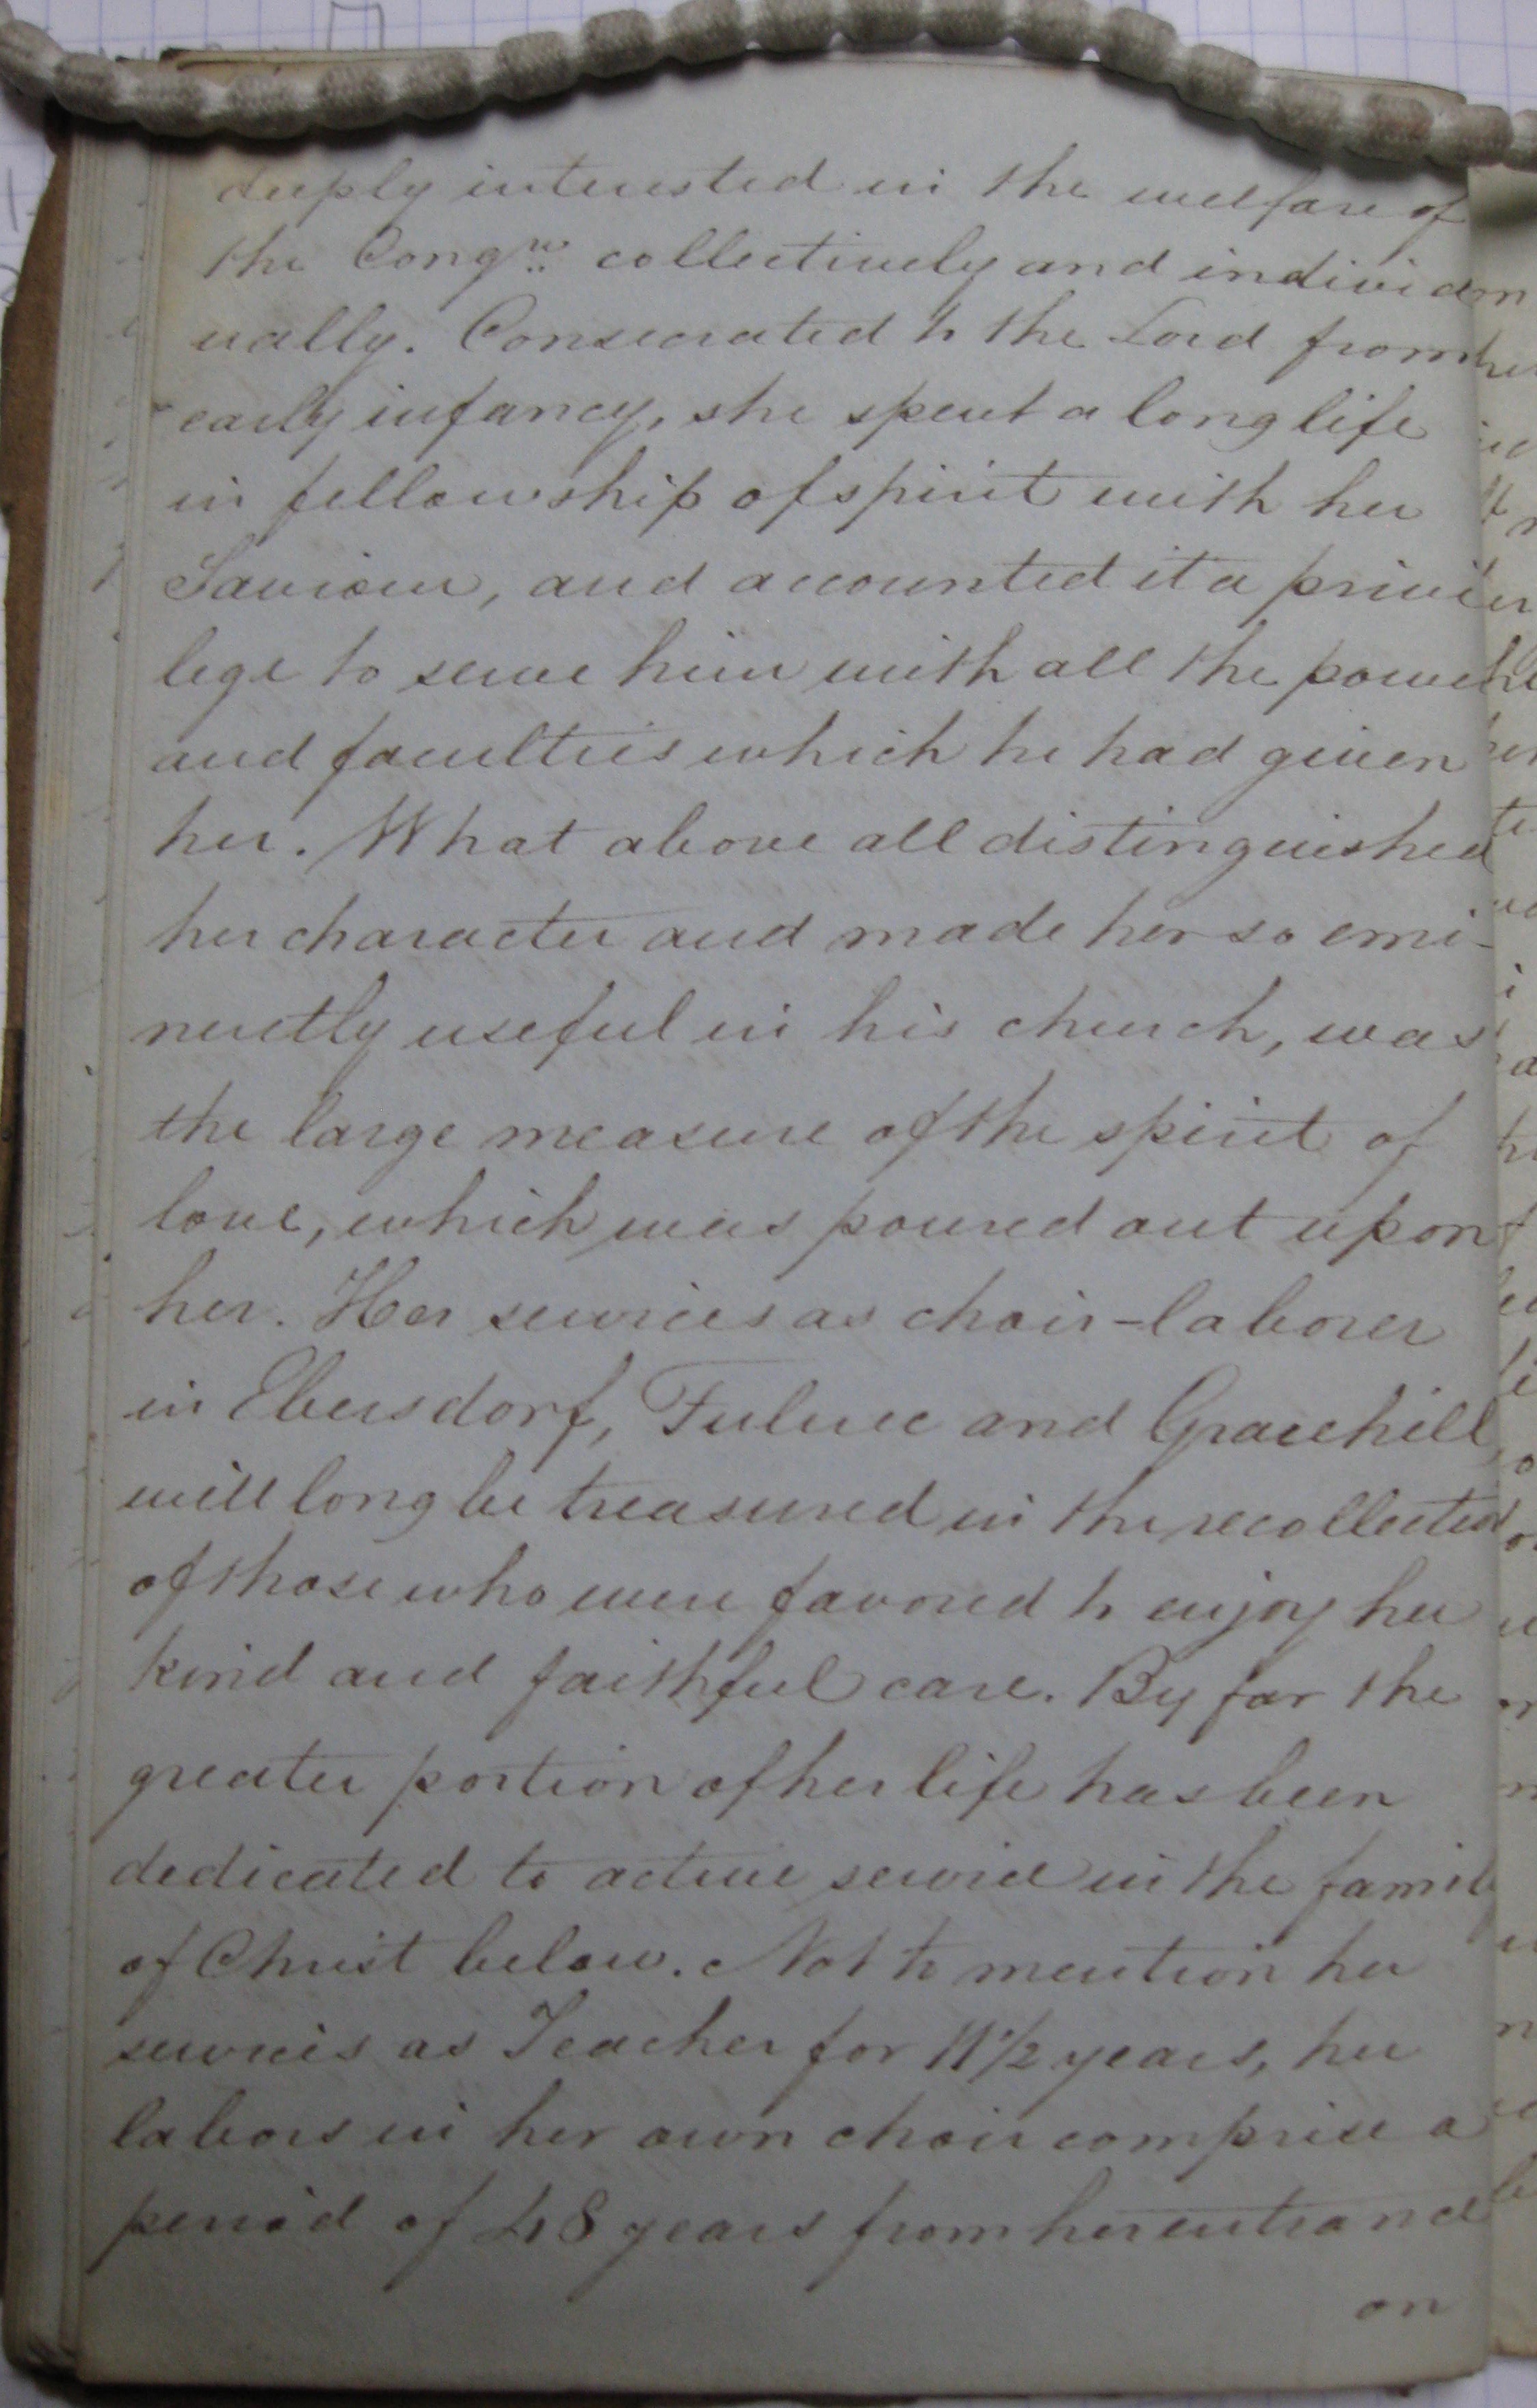 deeply interested in the welfare of
the Congn. collectively and individ
ually. Consecrated to the Lord from
early infancy, she spent a long life
in fellowship of spirit with her
Saviour, and accounted it a privi
lege to serve him with all the powers
and faculties which he had given
her. What above all distinguished
her character and made her so emi-
nently useful in his church, was
the large measure of the spirit of
love, which was poured out upon
her. Her services as choir-laborer
in Ebersdorf, Fulnec and Gracehill,
will long be treasured in the recollection
of those who were favored to enjoy her
kind and faithful care. By far the
greater portion of her life has been
dedicated to active service in the family
of Christ below. Not to mention her
services as Teacher for 11 1/2 years, her
labors in her own choir comprise a
period of 48 years from her entrance
on